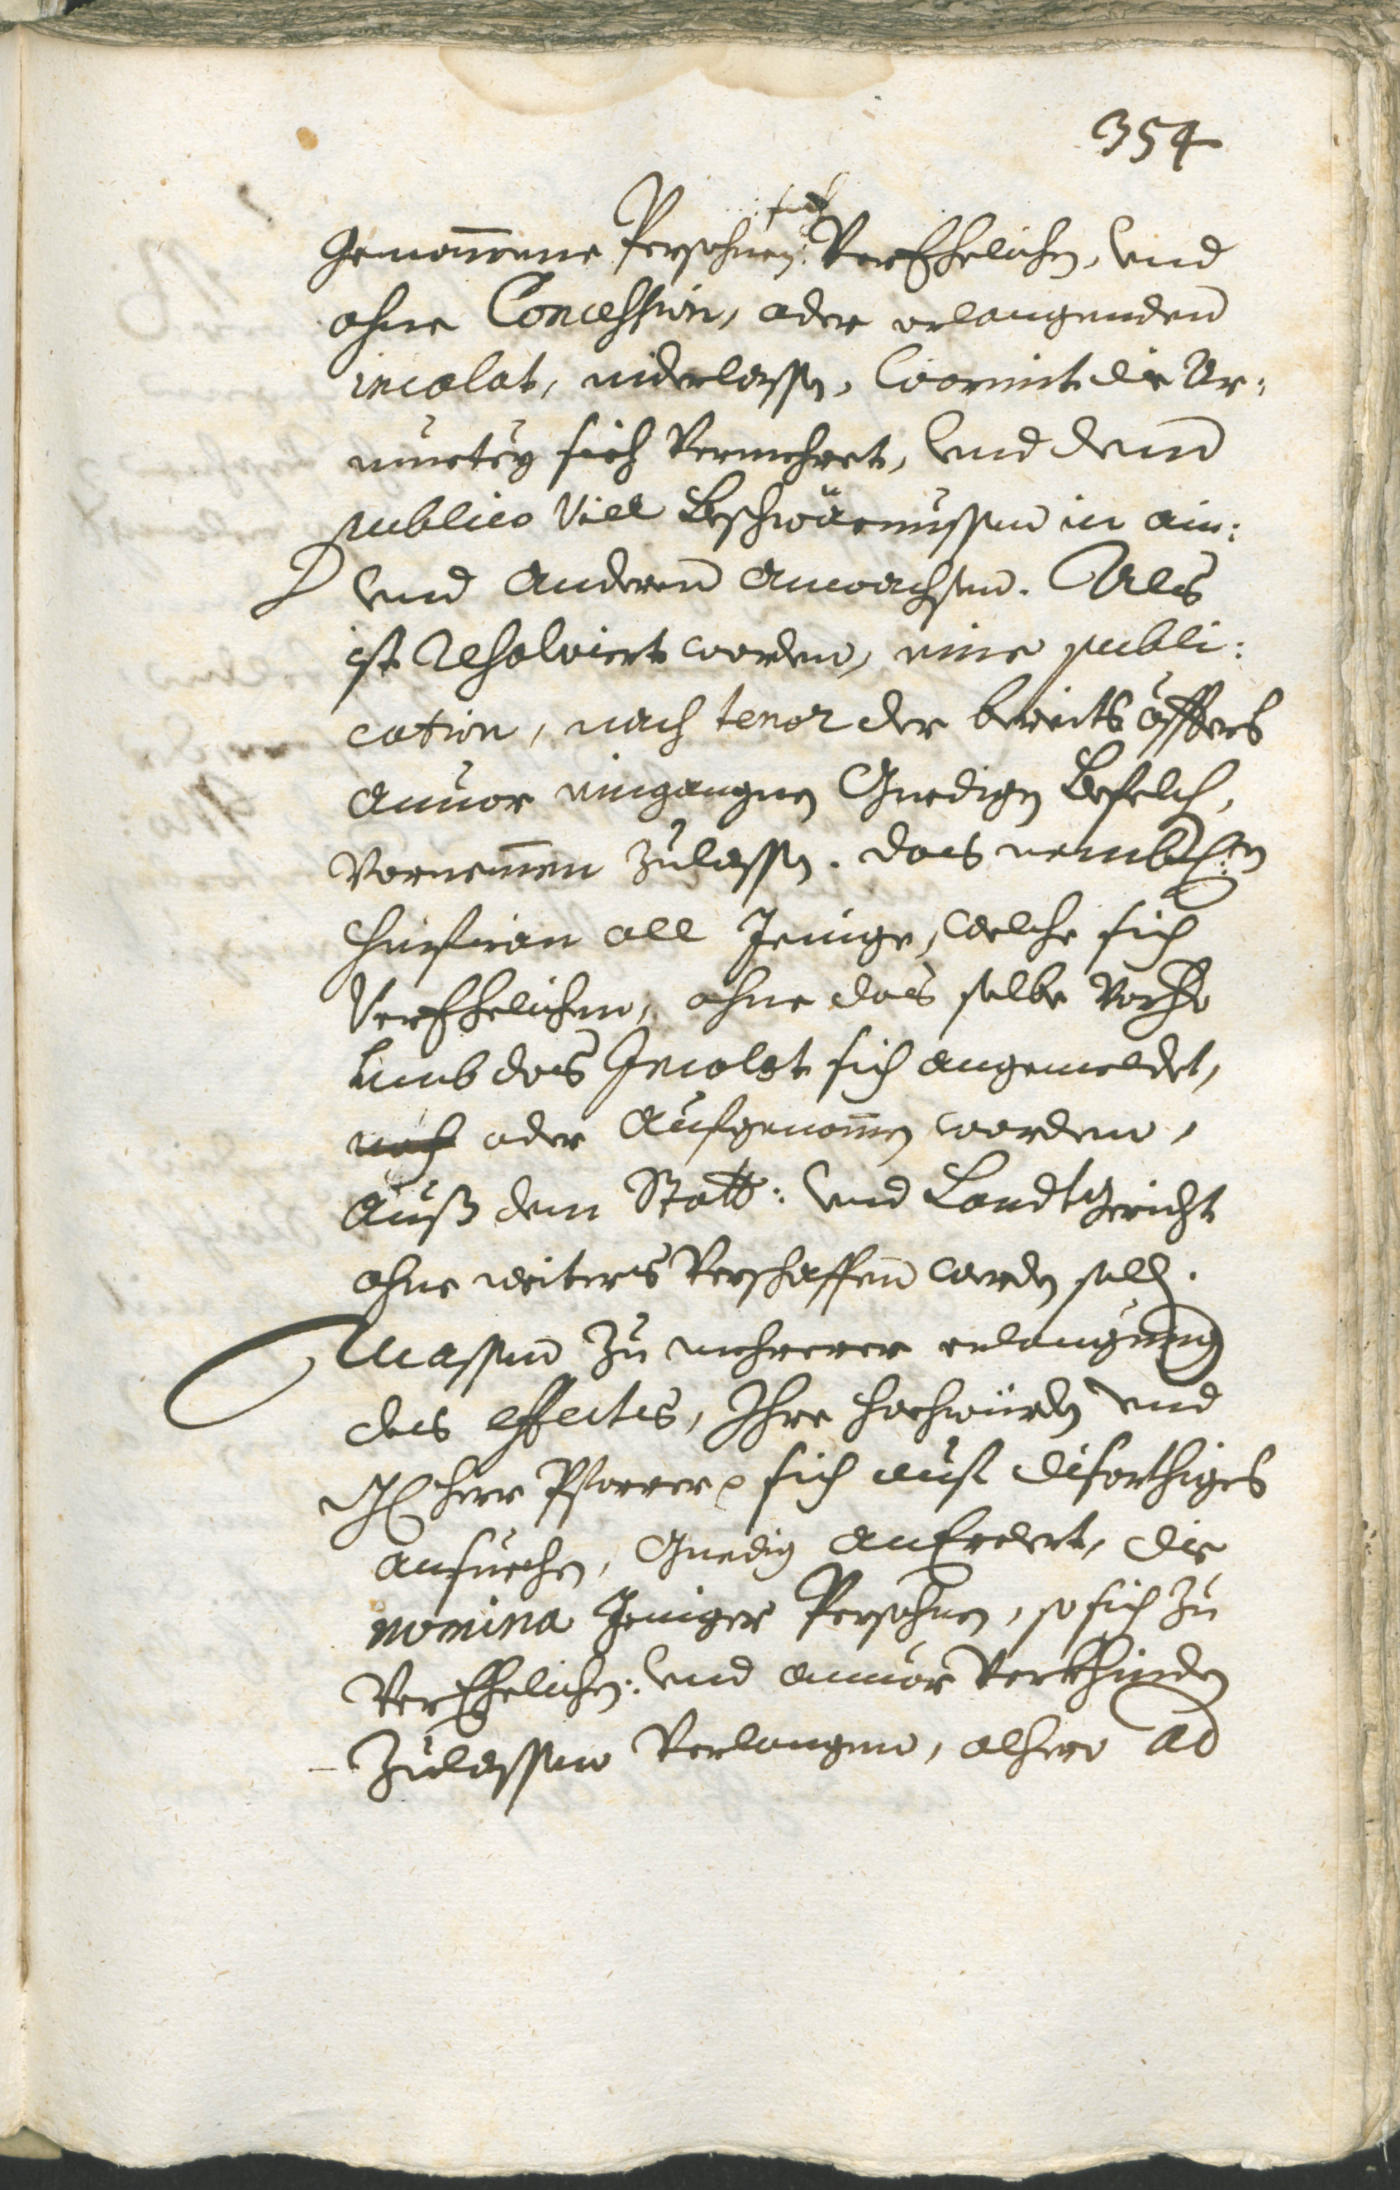 354
genommene Persohnen sich VerEhelichen, vnd
ohne Concession, oder erlangenden
incolat, niderlassen, wormit die Ar-
muetey sich Vermehret, vnd dem
publico Vill Beschwärnussen in ain:
vnd anderen anwachsen. Als
ist resolviert worden, eine publi:
cation, nach tenor der bereits öffters
anuor eingangnen Gnedigen Befelch,
Vornemmen zulassen. das nemblichen
hinfiran all Jenige, welche sich
VerEhelichen, ohne das selbe Vorhero
vmb das Incolat sich angemeldet,
noch oder aufgenommen worden,
auß dem Statt: vnd Landtgericht
ohne weiters Verschaffen werden soll.
Massen zu mehrerer erlangung
des effectus, Ihre hochwürden vnd
herr Pfarrer sich auf diserthiges
ansuechen, Gnedig anErclert, die
nomina Jeniger Persohnen, so sich zu
VerEhelichen: vnd anuor Verkhinden
zulassen Verlangen, alhero ad